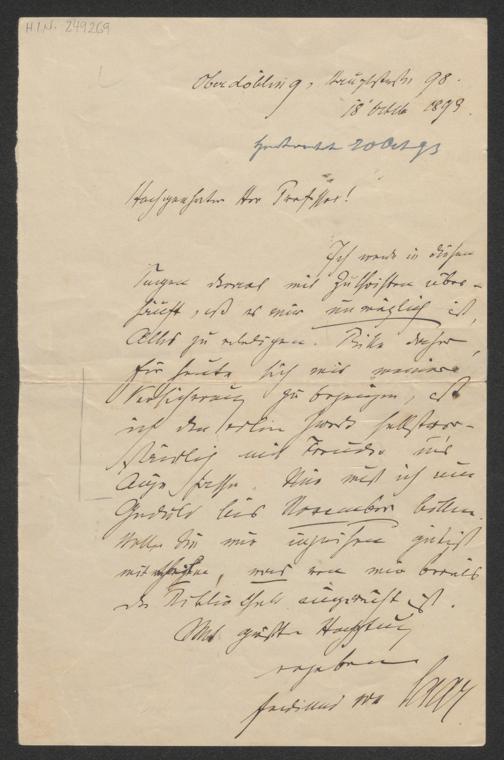 H.I.N. 249269
Oberdöbling, Hauptstraße 98.
18 October 1893.
20 Oct 93
Hochgeehrter Herr Professor!
Ich werde in diesen
Tagen derart mit Zuschriften über-
häuft, daß es mir unmöglich ist,
Alles zu erledigen. Bitte daher,
für heute sich mit meiner
Versicherung zu begnügen, daß
ich den edlen Zweck selbstver-
ständlich mit Freuden in's
Auge fasse. Nur muß ich um
Geduld bis November bitten.
Wollen Sie mir inzwischen gütigst
mittheilen, was von mir bereits
der Bibliothek eingereiht ist.
Mit größter Hochachtung
ergeben
Ferdinand von Saar